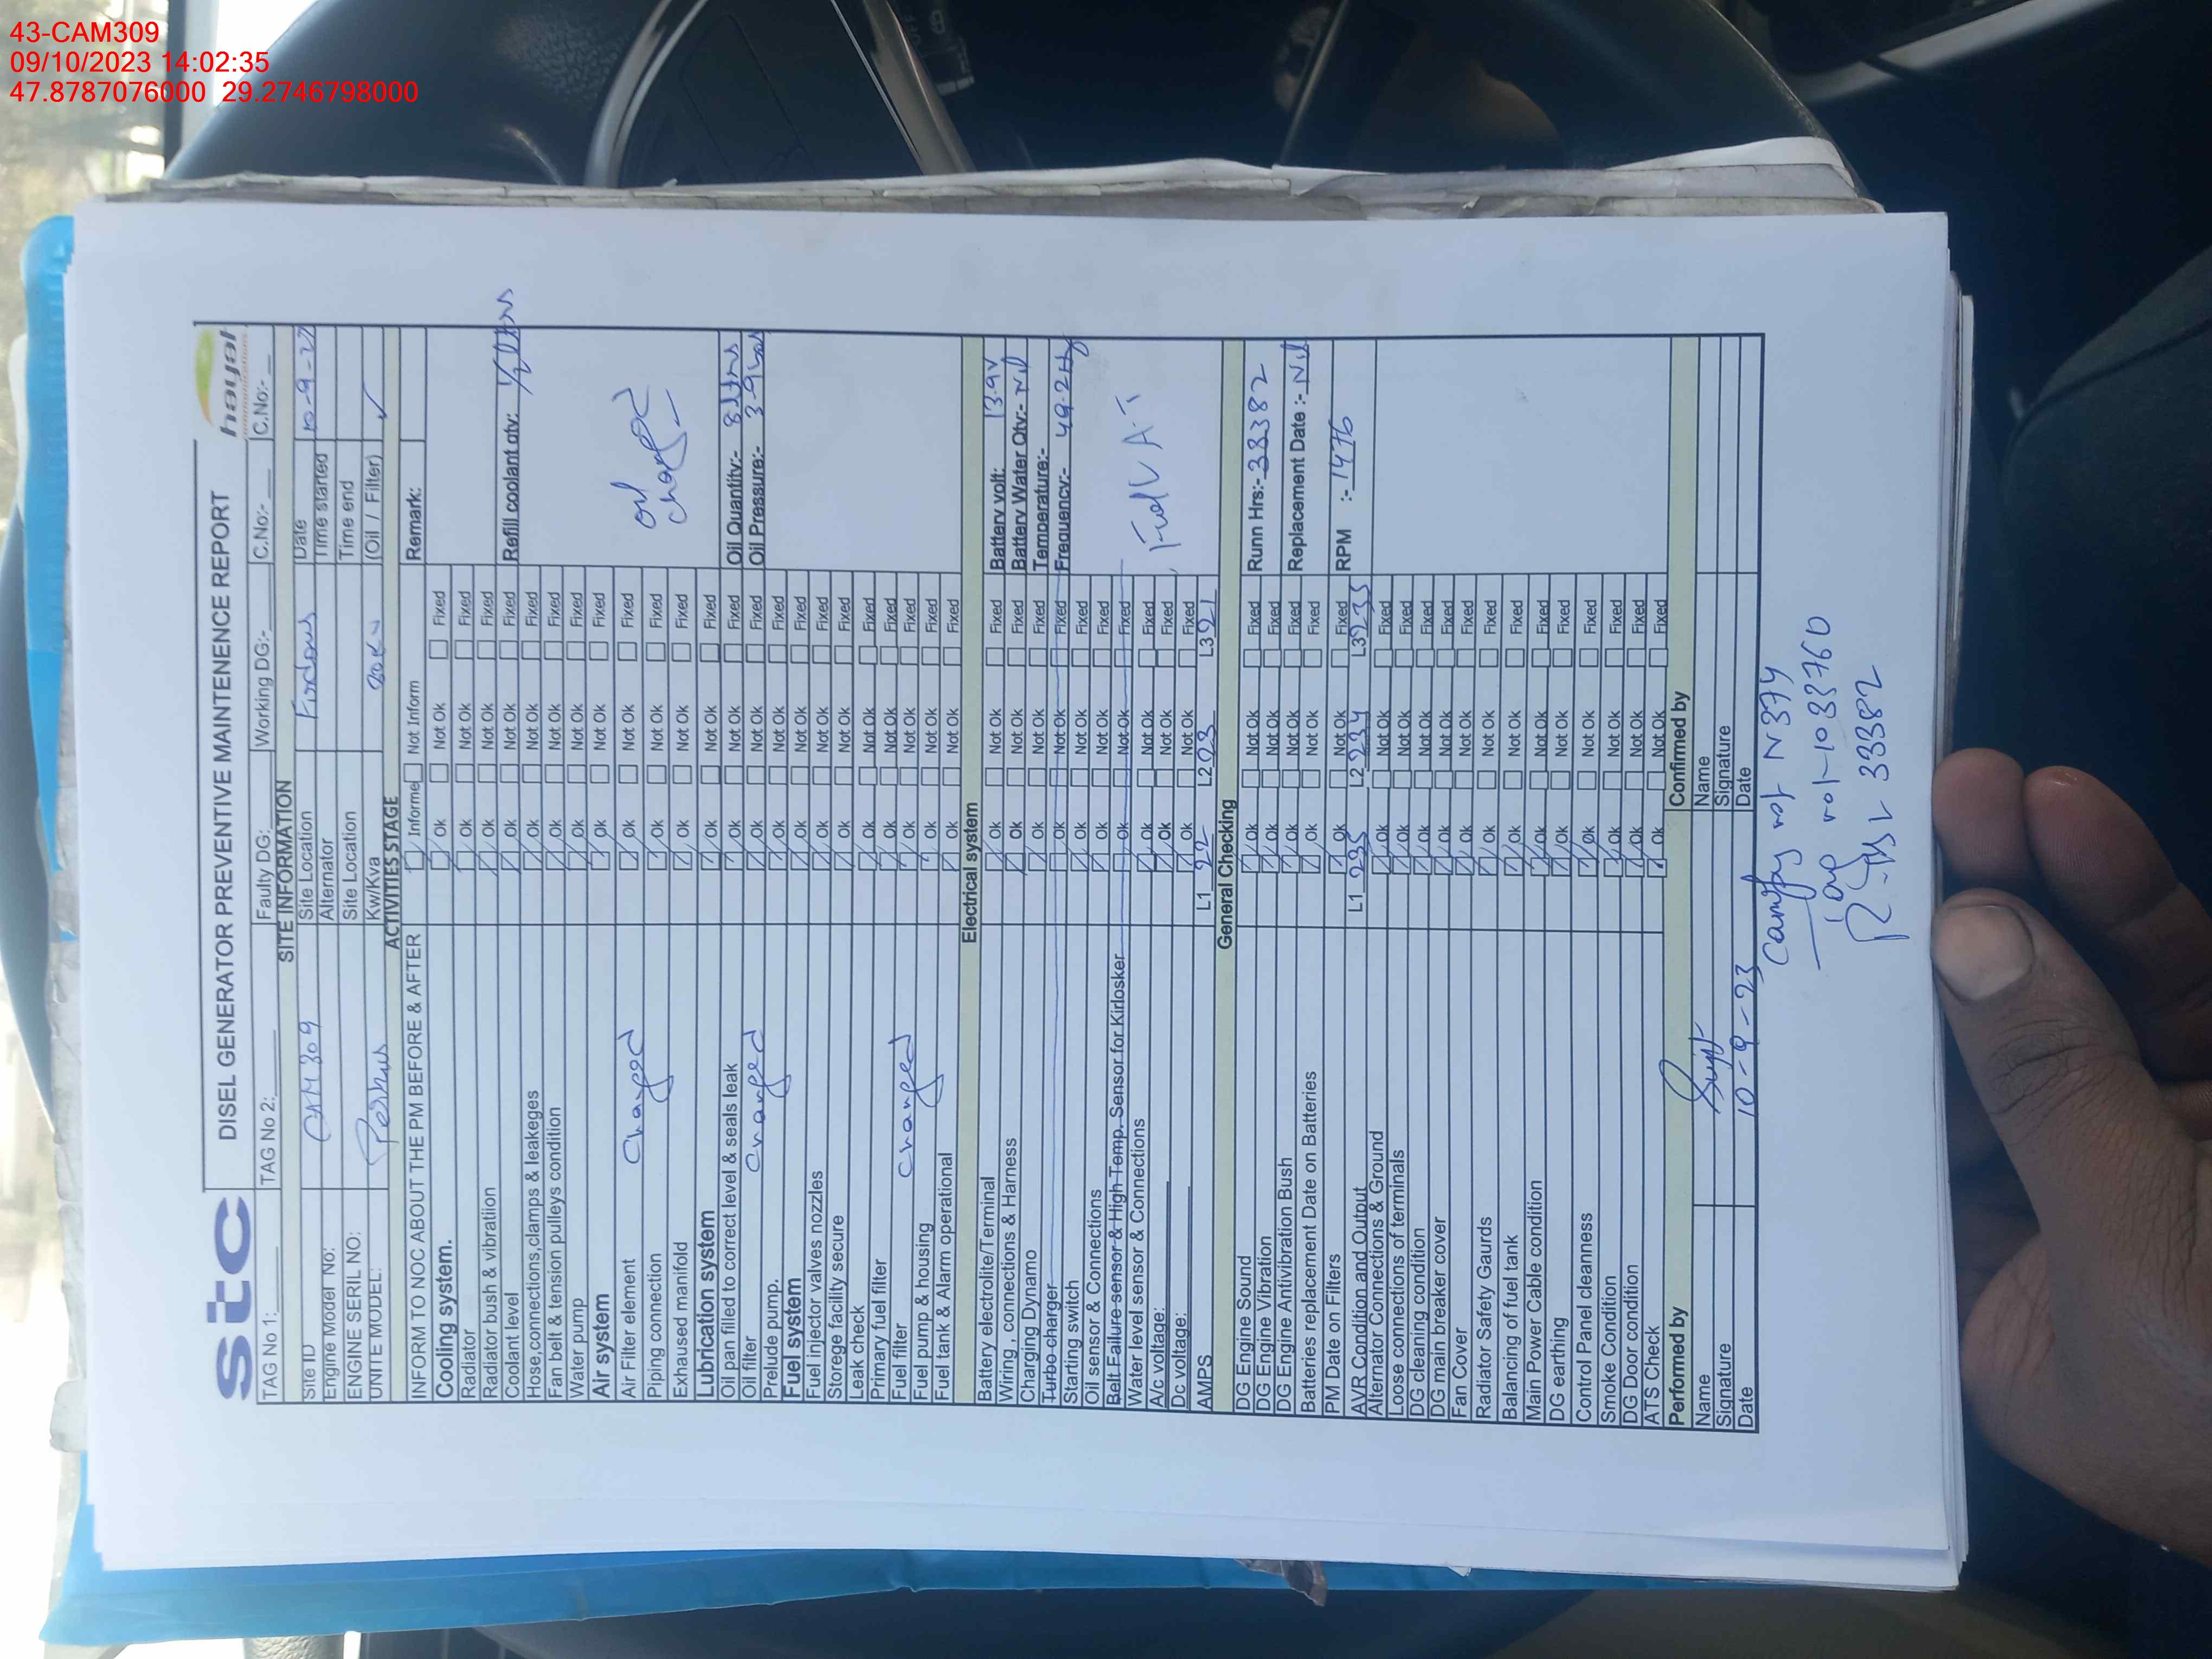 43-CAM309
09/10/2023 14:02:35
47.8787076000 29.2746798000
stc
DISEL GENERATOR PREVENTIVE MAINTENENCE REPORT
hayat
TAG No 1: TAG No 2: Faulty DG: Working DG:- C.No:- C.No:-
SITE INFORMATION
Site ID CAM 309 Site Location Firdous Date 10-9-23
Engine Model No: Alternator Time started
ENGINE SERIL NO: Site Location Time end
UNITE MODEL: Perkins Kw/Kva (Oil / Filter) ✓
ACTIVITIES STAGE
INFORM TO NOC ABOUT THE PM BEFORE & AFTER Informe Not Inform Remark:
Cooling system. Ok Not Ok Fixed
Radiator Ok Not Ok Fixed
Radiator bush & vibration Ok Not Ok Fixed
Coolant level Ok Not Ok Fixed Refill coolant qty:
Hose,connections,clamps & leakeges Ok Not Ok Fixed
Fan belt & tension pulleys condition Ok Not Ok Fixed
Water pump Ok Not Ok Fixed
Air system Ok Not Ok Fixed
Air Filter element Changed Ok Not Ok Fixed oil
Piping connection Ok Not Ok Fixed changed
Exhaused manifold Ok Not Ok Fixed
Lubrication system Ok Not Ok Fixed
Oil pan filled to correct level & seals leak Ok Not Ok Fixed Oil Quantity:- 8 Ltrs
Oil filter changed Ok Not Ok Fixed Oil Pressure:- 3-9bar
Prelude pump. Ok Not Ok Fixed
Fuel system Ok Not Ok Fixed
Fuel injector valves nozzles Ok Not Ok Fixed
Storege facility secure Ok Not Ok Fixed
Leak check Ok Not Ok Fixed
Primary fuel filter Ok Not Ok Fixed
Fuel filter changed Ok Not Ok Fixed
Fuel pump & housing Ok Not Ok Fixed
Fuel tank & Alarm operational Ok Not Ok Fixed
Electrical system
Battery electrolite/Terminal Ok Not Ok Fixed Battery volt: 13.9V
Wiring , connections & Harness Ok Not Ok Fixed Battery Water Qty:- Nil
Charging Dynamo Ok Not Ok Fixed Temperature:-
Turbo charger Ok Not Ok Fixed Frequency:- 49.2Hz
Starting switch Ok Not Ok Fixed
Oil sensor & Connections Ok Not Ok Fixed
Belt Failure sensor & High Temp. Sensor for Kirlosker Ok Not Ok Fixed
Water level sensor & Connections Ok Not Ok Fixed
A/c voltage: Ok Not Ok Fixed
Dc voltage: Ok Not Ok Fixed
AMPS L1 22 L2 23 L3 21
General Checking
DG Engine Sound Ok Not Ok Fixed Runn Hrs:- 33382
DG Engine Vibration Ok Not Ok Fixed
DG Engine Antivibration Bush Ok Not Ok Fixed Replacement Date :- Nil
Batteries replacement Date on Batteries Ok Not Ok Fixed
PM Date on Filters Ok Not Ok Fixed RPM :- 1476
AVR Condition and Output L1 235 L2 234 L3 235
Alternator Connections & Ground Ok Not Ok Fixed
Loose connections of terminals Ok Not Ok Fixed
DG cleaning condition Ok Not Ok Fixed
DG main breaker cover Ok Not Ok Fixed
Fan Cover Ok Not Ok Fixed
Radiator Safety Gaurds Ok Not Ok Fixed
Balancing of fuel tank Ok Not Ok Fixed
Main Power Cable condition Ok Not Ok Fixed
DG earthing Ok Not Ok Fixed
Control Panel cleanness Ok Not Ok Fixed
Smoke Condition Ok Not Ok Fixed
DG Door condition Ok Not Ok Fixed
ATS Check Ok Not Ok Fixed
Performed by Confirmed by
Name Name
Signature Signature
Date 10-9-23 Date
N374
1033760
33382